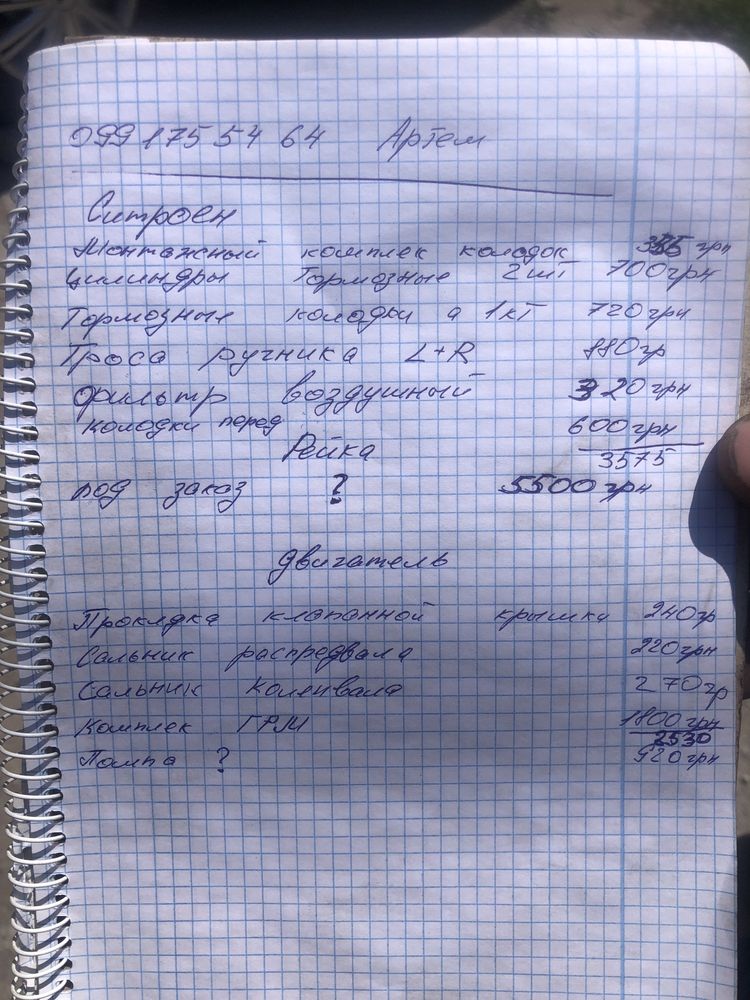 099 175 54 64 Артем
Ситроен
Монтажный комплек колодок 355 грн
Цилиндры Тормозные 2шт 700грн
Тормозные колодки а 1кТ 720грн
Троса ручника L+R 880гр
Фильтр воздушный 320грн
Колодки перед 600грн
Рейка 3575
под заказ ? 5500грн
Двигатель
Прокладка клапанной крышка 240гр
Сальник распредвала 220грн
Сальник Коленвала 270гр
Комплек ГРМ 1800грн
2530
Помпа ? 920грн